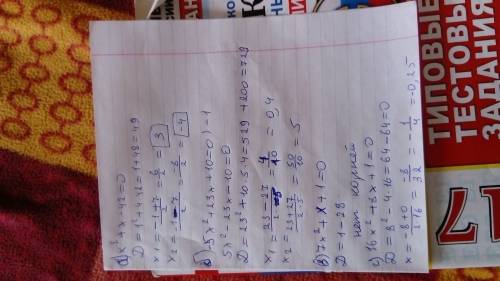 а) x² + x - 12 = 0
D = 1² + 4·12 = 1 + 48 = 49
x1 = (-1+7)/2 = 6/2 = 3
x2 = (-1-7)/2 = -8/2 = -4
б) -5x² + 23x + 10 = 0) -1
5x² - 23x - 10 = 0
D = 23² + 10·5·4 = 529 + 200 = 729
x2 = (23+27)/(2·5) = 50/10 = 5
в) 7x² + x + 1 = 0
D = 1 - 28
нет корней
г) 16x² + 8x + 1 = 0
D = 8² - 4·16 = 64 - 64 = 0
x = (-8+0)/(2·16) = -8/32 = -1/4 = -0,25
ТИПОВЫЕ
ТЕСТОВЫ
ЗАДАНИЯ